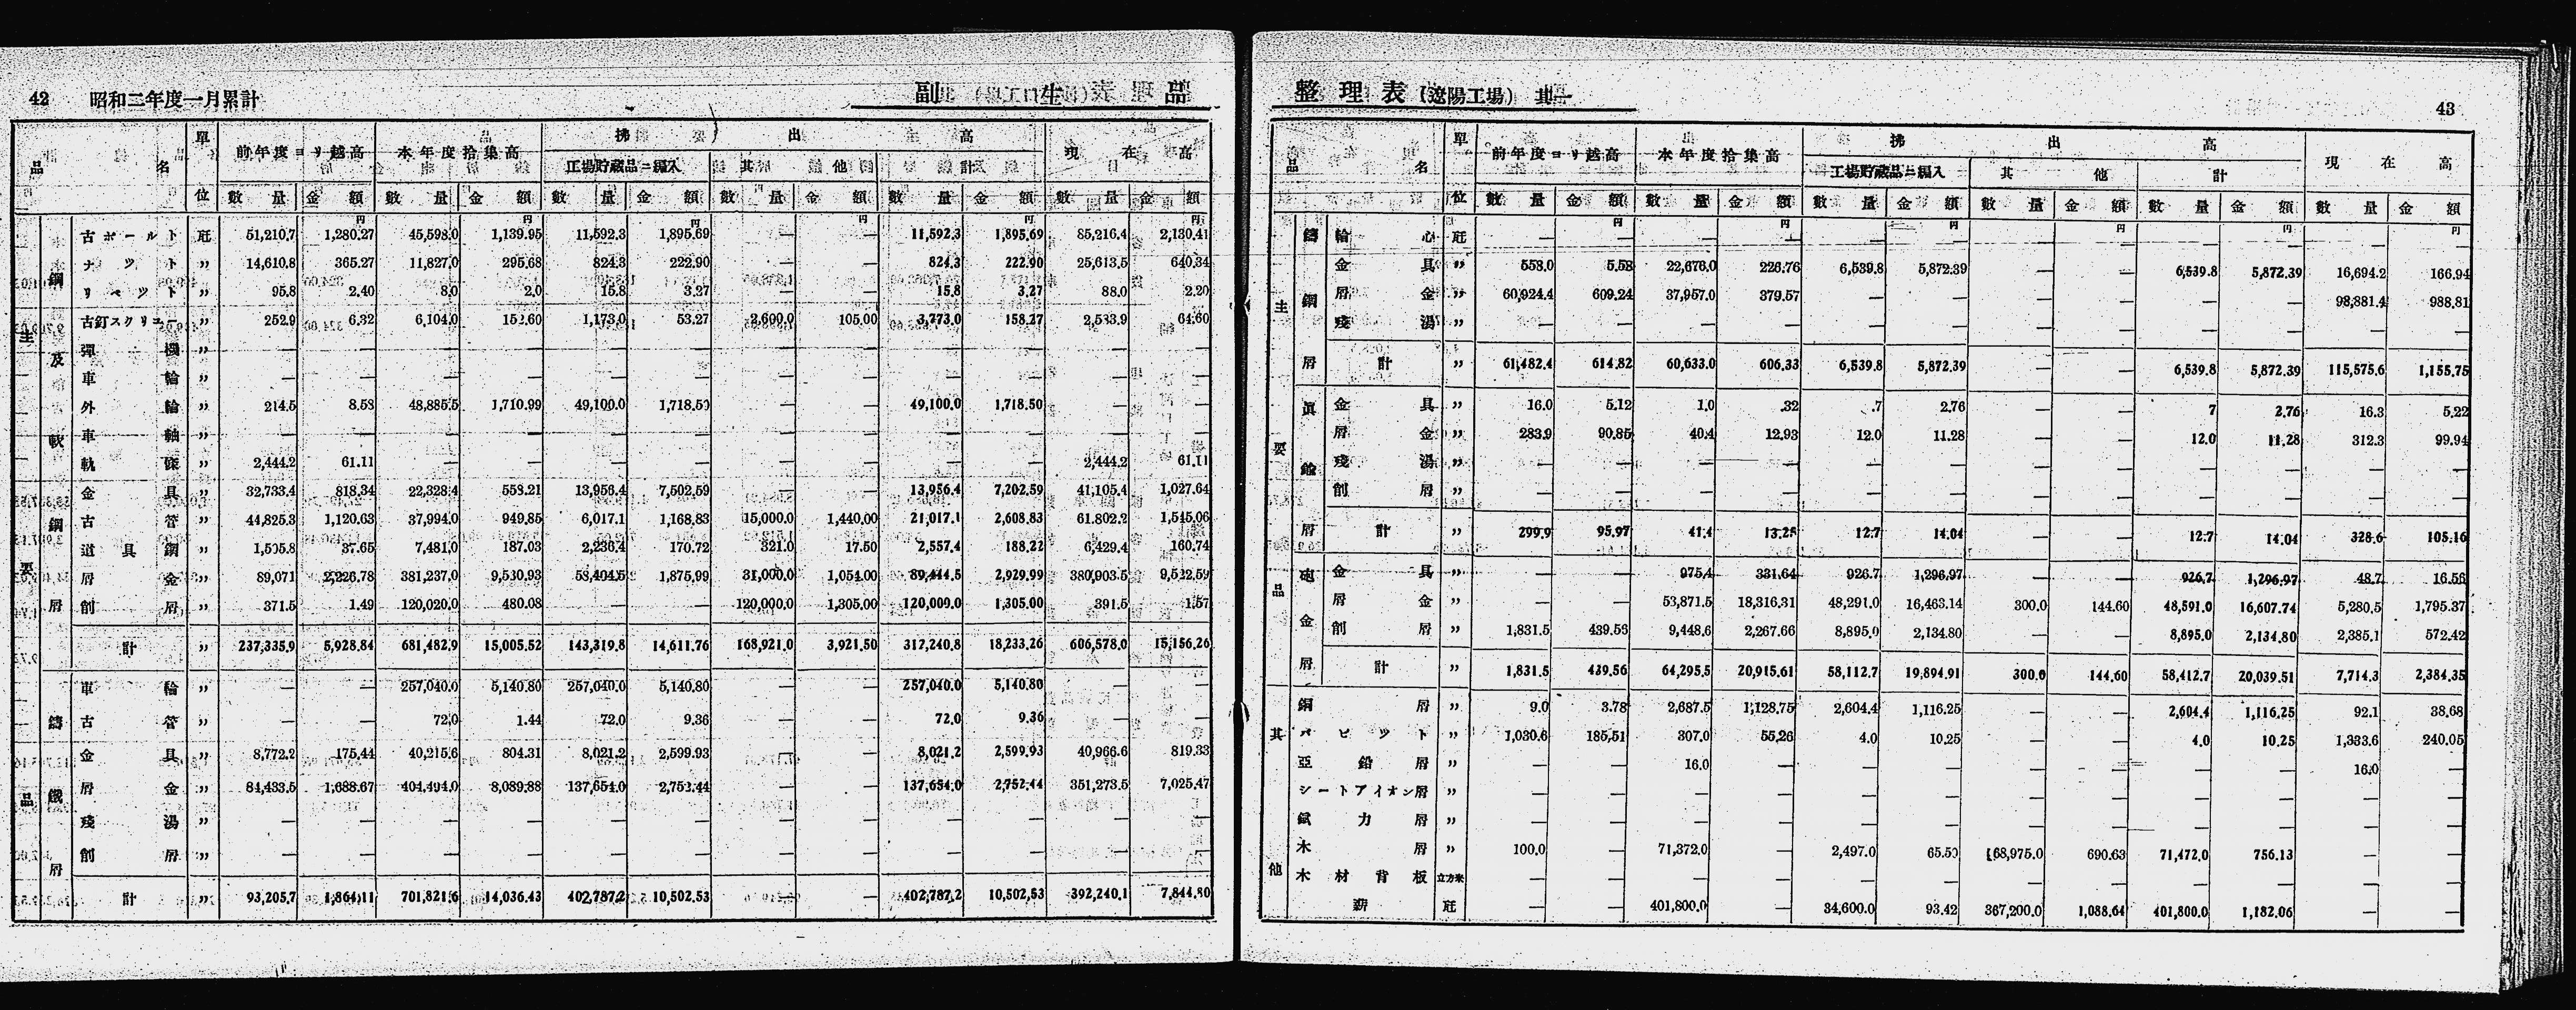 42 昭和二年度一月累計 副生品
品名 單位 前年度ヨリ越高 本年度拾集高 拂出高 現在高
工場貯蔵品ニ編入 其他 計
數量 金額 數量 金額 數量 金額 數量 金額 數量 金額 數量 金額
円 円 円 円 円 円
主要品
鋼及軟鋼屑
古ボールト 瓩 51,210.7 1,280.27 45,598.0 1,139.95 11,592.3 1,895.69 — — 11,592.3 1,895.69 85,216.4 2,130.41
ナット 〃 14,610.8 365.27 11,827.0 295.68 824.3 222.90 — — 824.3 222.90 25,613.5 640.34
リベット 〃 95.8 2.40 8.0 2.0 15.8 3.27 — — 15.8 3.27 88.0 2.20
古釘スクリユー 〃 252.9 6.32 6,104.0 152.60 1,173.0 53.27 2,600.0 105.00 3,773.0 158.27 2,583.9 64.60
彈機 〃 — — — — — — — — — — — —
車輪 〃 — — — — — — — — — — — —
外輪 〃 214.5 8.58 48,885.5 1,710.99 49,100.0 1,718.50 — — 49,100.0 1,718.50 — —
車軸 〃 — — — — — — — — — — — —
軌條 〃 2,444.2 61.11 — — — — — — — — 2,444.2 61.11
金具 〃 32,733.4 818.34 22,328.4 558.21 13,956.4 7,502.59 — — 13,956.4 7,202.59 41,105.4 1,027.64
古管 〃 44,825.3 1,120.63 37,994.0 949.85 6,017.1 1,168.83 15,000.0 1,440.00 21,017.1 2,608.83 61.802.2 1,545.06
道具鋼 〃 1,505.8 37.65 7,481.0 187.03 2,236.4 170.72 321.0 17.50 2,557.4 188.22 6,429.4 160.74
屑金 〃 89,071 2,226.78 381,237.0 9,530.93 58,404.5 1,875.99 31,000.0 1,054.00 89,444.5 2,929.99 380,903.5 9,522.59
削屑 〃 371.5 1.49 120,020.0 480.08 — — 120,000.0 1,305.00 120,000.0 1,305.00 391.5 1.57
計 〃 237,335.9 5,928.84 681,482.9 15,005.52 143,319.8 14,611.76 168,921.0 3,921.50 312,240.8 18,233.26 606,578.0 15,156.26
鑄鐵屑
車輪 〃 — — 257,040.0 5,140.80 257,040.0 5,140.80 — — 257,040.0 5,140.80 — —
古管 〃 — — 72.0 1.44 72.0 9.36 — — 72.0 9.36 — —
金具 〃 8,772.2 175.44 40,215.6 804.31 8,021.2 2,599.93 — — 8,021.2 2,599.93 40,966.6 819.33
屑金 〃 84,433.5 1,688.67 404,494.0 8,089.88 137,654.0 2,752.44 — — 137,654.0 2,752.44 351,273.5 7,025.47
殘湯 〃 — — — — — — — — — — — —
削屑 〃 — — — — — — — — — — — —
計 〃 93,205.7 1,864.11 701,821.6 14,036.43 402,787.2 10,502.53 — — 402,787.2 10,502.53 392,240.1 7,844.80
整理表(遼陽工場) 其一 43
品名 單位 前年度ヨリ越高 本年度拾集高 拂出高 現在高
工場貯蔵品ニ編入 其他 計
數量 金額 數量 金額 數量 金額 數量 金額 數量 金額 數量 金額
円 円 円 円 円 円
主要品
鑄鋼屑
輪心 瓩 — — — — — — — — — — — —
金具 〃 558.0 5.58 22,676.0 226.76 6,539.8 5,872.39 — — 6,539.8 5,872.39 16,694.2 166.94
屑金 〃 60,924.4 609.24 37,957.0 379.57 — — — — — — 98,881.4 988.81
殘湯 〃 — — — — — — — — — — — —
計 〃 61,482.4 614.82 60,633.0 606.33 6,539.8 5,872.39 — — 6,539.8 5,872.39 115,575.6 1,155.75
眞鍮屑
金具 〃 16.0 5.12 1.0 .32 .7 2.76 — — 7 2.76 16.3 5.22
屑金 〃 283.9 90.85 40.4 12.93 12.0 11.28 — — 12.0 11.28 312.3 99.94
殘湯 〃 — — — — — — — — — — — —
削屑 〃 — — — — — — — — — — — —
計 〃 299.9 95.97 41.4 13.25 12.7 14.04 — — 12.7 14.04 328.6 105.16
砲金屑
金具 〃 — — 975.4 331.64 926.7 1,296.97 — — 926.7 1,296.97 48.7 16.56
屑金 〃 — — 53,871.5 18,316.31 48,291.0 16,463.14 300.0 144.60 48,591.0 16,607.74 5,280.5 1,795.37
削屑 〃 1,831.5 439.56 9,448.6 2,267.66 8,895.0 2,134.80 — — 8,895.0 2,134.80 2,385.1 572.42
計 〃 1,831.5 439.56 64,295.5 20,915.61 58,112.7 19,894.91 300.0 144.60 58,412.7 20,039.51 7,714.3 2,384.35
其他
銅屑 〃 9.0 3.78 2,687.5 1,128.75 2,604.4 1,116.25 — — 2,604.4 1,116.25 92.1 38.68
バビット 〃 1,030.6 185.51 307.0 55.26 4.0 10.25 — — 4.0 10.25 1,333.6 240.05
亞鉛屑 〃 — — 16.0 — — — — — — — 16.0 —
シートアイオン屑 〃 — — — — — — — — — — — —
錻力屑 〃 — — — — — — — — — — — —
木屑 〃 100.0 — 71,372.0 — 2,497.0 65.50 68,975.0 690.63 71,472.0 756.13 — —
木材背板 立方米 — — — — — — — — — — — —
薪 瓩 — — 401,800.0 — 34,600.0 93.42 367,200.0 1,088.64 401,800.0 1,182.06 — —